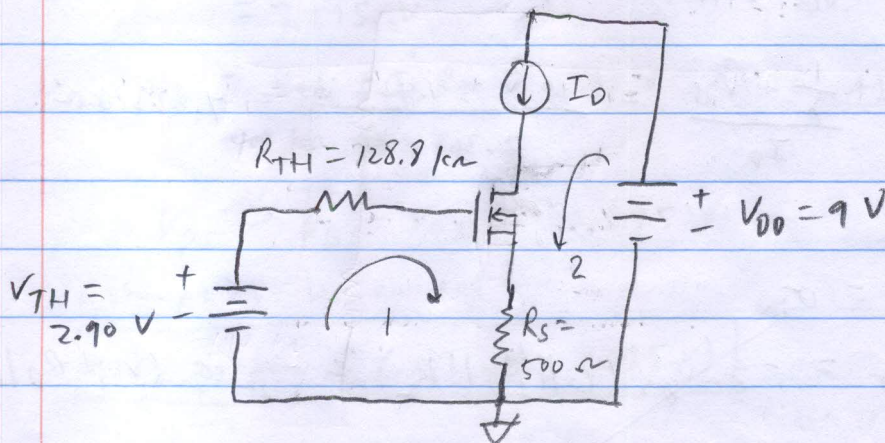 I_D
R_TH = 128.8 kΩ
+
- V_DD = 9 V
2
V_TH = + 
2.90 V -
1
R_S =
500 Ω